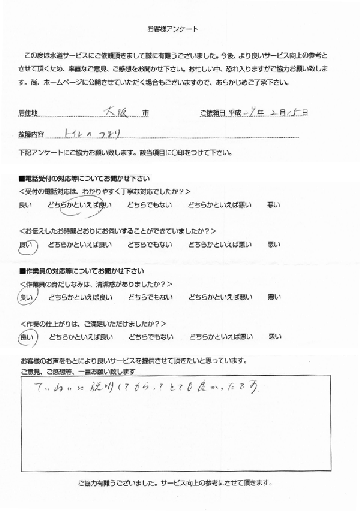 お客様アンケート
この度は水道サービスにご依頼頂きまして誠に有難うございました。今後、より良いサービス向上の参考と
させて頂くため、率直なご意見、ご感想をお聞かせ下さい。お忙しい中、恐れ入りますがご協力お願い致しま
す。尚、ホームページに公開させていただく場合もございますので、あらかじめご了承下さい。
居住地 大阪 市 ご依頼日 平成 29 年 2 月 15 日
故障内容 トイレのつまり
下記アンケートにご協力お願い致します。該当項目に○印をつけて下さい。
■電話受付の対応等についてお聞かせ下さい
<受付の電話対応は、わかりやすく丁寧な対応でしたか?>
良い どちらかといえば良い どちらでもない どちらかといえば悪い 悪い
<お伝えしたお時間どおりにお伺いすることができていましたか?>
良い どちらかといえば良い どちらでもない どちらかといえば悪い 悪い
■作業員の対応等についてお聞かせ下さい
<作業員の身だしなみは、清潔感がありましたか?>
良い どちらかといえば良い どちらでもない どちらかといえば悪い 悪い
<作業の仕上がりは、ご満足いただけましたか?>
良い どちらかといえば良い どちらでもない どちらかといえば悪い 悪い
お客様のお声をもとにより良いサービスを提供させて頂きたいと思っています。
ご意見、ご感想等、一言お願い致します
ていねいに説明してもらってとても良かったです
ご協力有難うございました。サービス向上の参考にさせて頂きます。